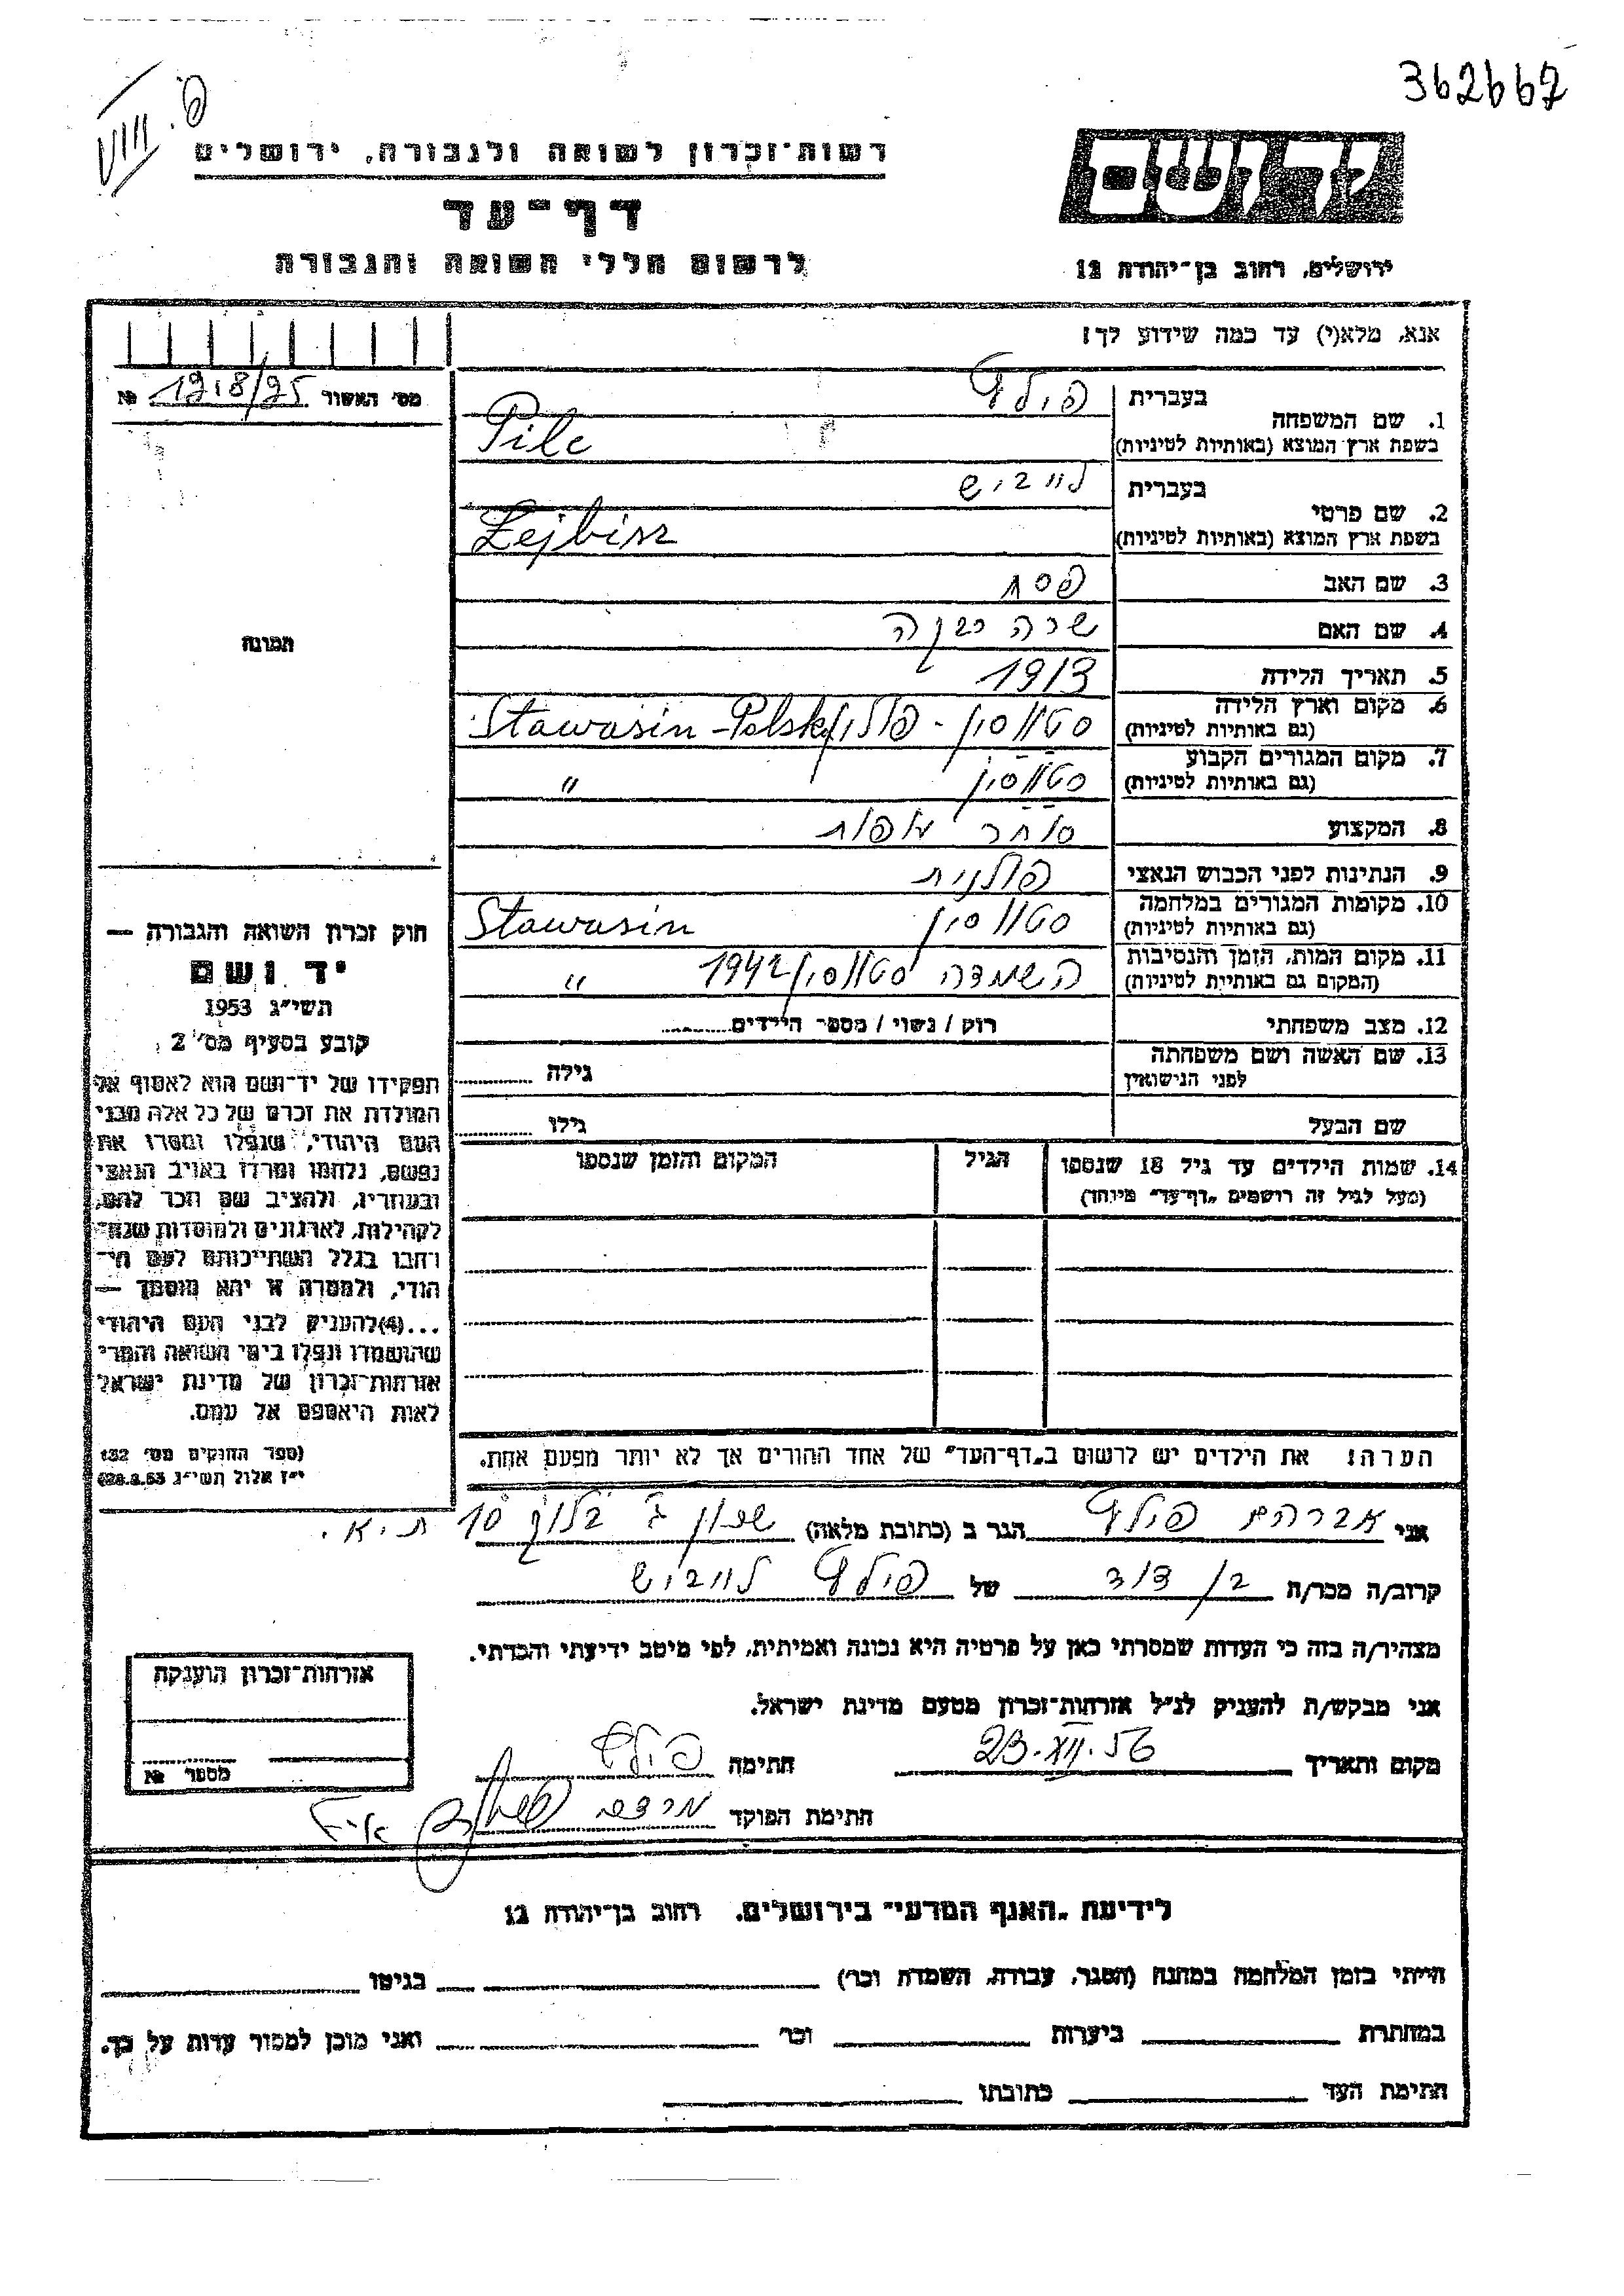 362667
פ. VIII
יד ושם
רשות-זכרון לשואה ולגבורה, ירושלים
דף-עד
לרשום חללי השואה והגבורה
ירושלים, רחוב בן-יהודה 12
אנא, מלא(י) עד כמה שידוע לך!
מס' האשור 1218/95 №
1. שם המשפחה
בעברית פילץ
בשפת ארץ המוצא (באותיות לטיניות) Pilc
2. שם פרטי
בעברית לייביש
בשפת ארץ המוצא (באותיות לטיניות) Lejbisz
3. שם האב פסח
4. שם האם שרה
5. תאריך הלידה 1913
6. מקום וארץ הלידה (גם באותיות לטיניות) סטווסין - פולין Stawasin - Polska
7. מקום המגורים הקבוע (גם באותיות לטיניות) סטווסין "
8. המקצוע סוחר
9. הנתינות לפני הכבוש הנאצי פולנית
10. מקומות המגורים במלחמה (גם באותיות לטיניות) סטווסין Stawasin
11. מקום המות, הזמן והנסיבות (המקום גם באותיות לטיניות) השמדה סטווסין 1942 "
12. מצב משפחתי רוק / נשוי / מספר הילדים
13. שם האשה ושם משפחתה לפני הנישואין גילה
שם הבעל גילו
14. שמות הילדים עד גיל 18 שנספו הגיל המקום והזמן שנספו
(מעל לגיל זה רושמים „דף-עד" מיוחד)
הערה: את הילדים יש לרשום ב„דף-העד" של אחד ההורים אך לא יותר מפעם אחת.
תמונה
חוק זכרון השואה והגבורה —
יד ושם
תשי"ג 1953
קובע בסעיף מס' 2:
תפקידו של יד-ושם הוא לאסוף אל
המולדת את זכרם של כל אלה מבני
העם היהודי, שנפלו ומסרו את
נפשם, נלחמו ומרדו באויב הנאצי
ובעוזריו, ולהציב שם וזכר להם,
לקהילות, לארגונים ולמוסדות שנח-
רבו בגלל השתייכותם לעם הי-
הודי, ולמטרה זו יהא מוסמך —
...(4) להעניק לבני העם היהודי
שהושמדו ונפלו בימי השואה והמרי
אזרחות-זכרון של מדינת ישראל
לאות היאספם אל עמם.
(ספר החוקים מס' 132
י"ז אלול תשי"ג 28.8.53)
אני אברהם פילץ הגר ב (כתובת מלאה) בלוק 10 ת"א.
קרוב/ה מכר/ה בן דוד של פילץ לייביש
מצהיר/ה בזה כי העדות שמסרתי כאן על פרטיה היא נכונה ואמיתית, לפי מיטב ידיעתי והכרתי.
אני מבקש/ת להעניק לנ"ל אזרחות-זכרון מטעם מדינת ישראל.
מקום ותאריך 23.XII.56 חתימה פילץ
חתימת הפוקד
אזרחות-זכרון הוענקה
מספר №
לידיעת „האגף המדעי" בירושלים, רחוב בן-יהודה 12
הייתי בזמן המלחמה במחנה (הסגר, עבודה, השמדה וכר') בגיטו
במחתרת ביערות וכר' ואני מוכן למסור עדות על כך.
חתימת העד כתובתו